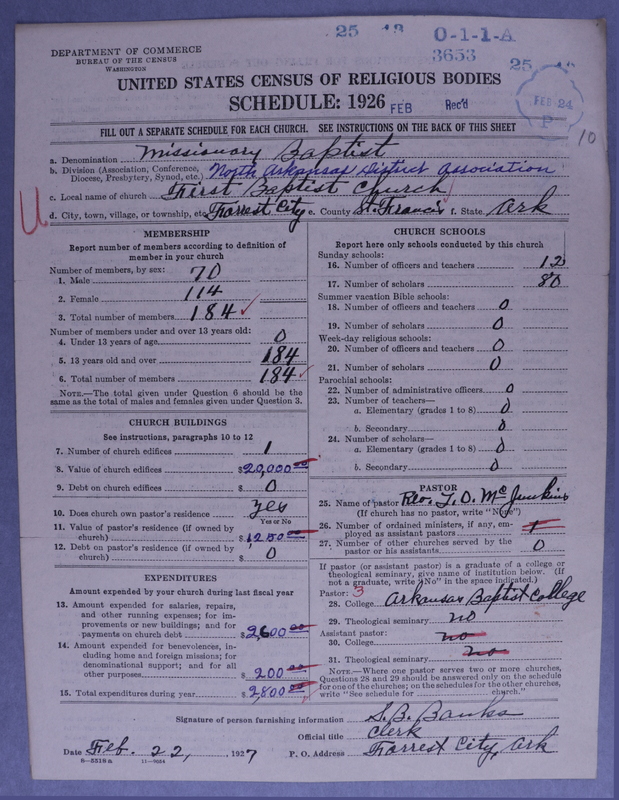 25 13 O-1-1-A
3653 25
DEPARTMENT OF COMMERCE
BUREAU OF THE CENSUS
WASHINGTON
UNITED STATES CENSUS OF RELIGIOUS BODIES
SCHEDULE: 1926 FEB Rec'd FEB 24 P
10
FILL OUT A SEPARATE SCHEDULE FOR EACH CHURCH. SEE INSTRUCTIONS ON THE BACK OF THIS SHEET
a. Denomination Missionary Baptist
b. Division (Association, Conference, Diocese, Presbytery, Synod, etc.) North Arkansas District Association
c. Local name of church First Baptist Church
d. City, town, village, or township, etc. Forrest City e. County St. Francis f. State Ark
MEMBERSHIP
Report number of members according to definition of
member in your church
Number of members, by sex:
1. Male 70
2. Female 114
3. Total number of members 184
Number of members under and over 13 years old:
4. Under 13 years of age 0
5. 13 years old and over 184
6. Total number of members 184
NOTE.—The total given under Question 6 should be
same as the total of males and females given under Question 3.
CHURCH BUILDINGS
See instructions, paragraphs 10 to 12
7. Number of church edifices 1
8. Value of church edifices $20,000.00
9. Debt on church edifices $ 0
10. Does church own pastor's residence? yes
Yes or No
11. Value of pastor's residence (if owned by
church) $ 1250.00
12. Debt on pastor's residence (if owned by
church) $ 0
EXPENDITURES
Amount expended by your church during last fiscal year
13. Amount expended for salaries, repairs,
and other running expenses; for im-
provements or new buildings; and for
payments on church debt $2,600.00
14. Amount expended for benevolences, in-
cluding home and foreign missions; for
denominational support; and for all
other purposes 200.00
15. Total expenditures during year $2,800.00
CHURCH SCHOOLS
Report here only schools conducted by this church
Sunday schools:
16. Number of officers and teachers 12
17. Number of scholars 80
Summer vacation Bible schools:
18. Number of officers and teachers 0
19. Number of scholars 0
Week-day religious schools:
20. Number of officers and teachers 0
21. Number of scholars 0
Parochial schools:
22. Number of administrative officers 0
23. Number of teachers—
a. Elementary (grades 1 to 8) 0
b. Secondary 0
24. Number of scholars—
a. Elementary (grades 1 to 8) 0
b. Secondary 0
PASTOR
25. Name of pastor Rev. T. D. McJunkins
(If church has no pastor, write "None")
26. Number of ordained ministers, if any, em-
ployed as assistant pastors 1
27. Number of other churches served by the
pastor or his assistants 0
If pastor (or assistant pastor) is a graduate of a college or
theological seminary, give name of institution below. (If
not a graduate, write "No" in the space indicated.)
Pastor: 3
28. College Arkansas Baptist College
29. Theological seminary no
Assistant pastor:
30. College no
31. Theological seminary no
NOTE.—Where one pastor serves two or more churches,
Questions 28 and 29 should be answered only on the schedule
for one of the churches; on the schedules for the other churches,
write "See schedule for church."
Signature of person furnishing information S. B. Banks
Official title Clerk
Date Feb. 22, 1927 P. O. Address Forrest City, Ark
8—5318a 11—9084